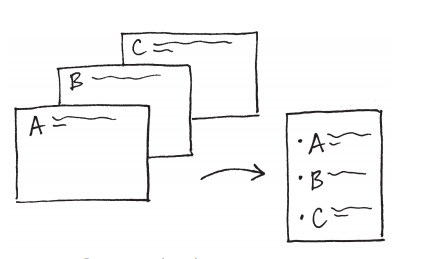 C
B
A
• A
• B
• C